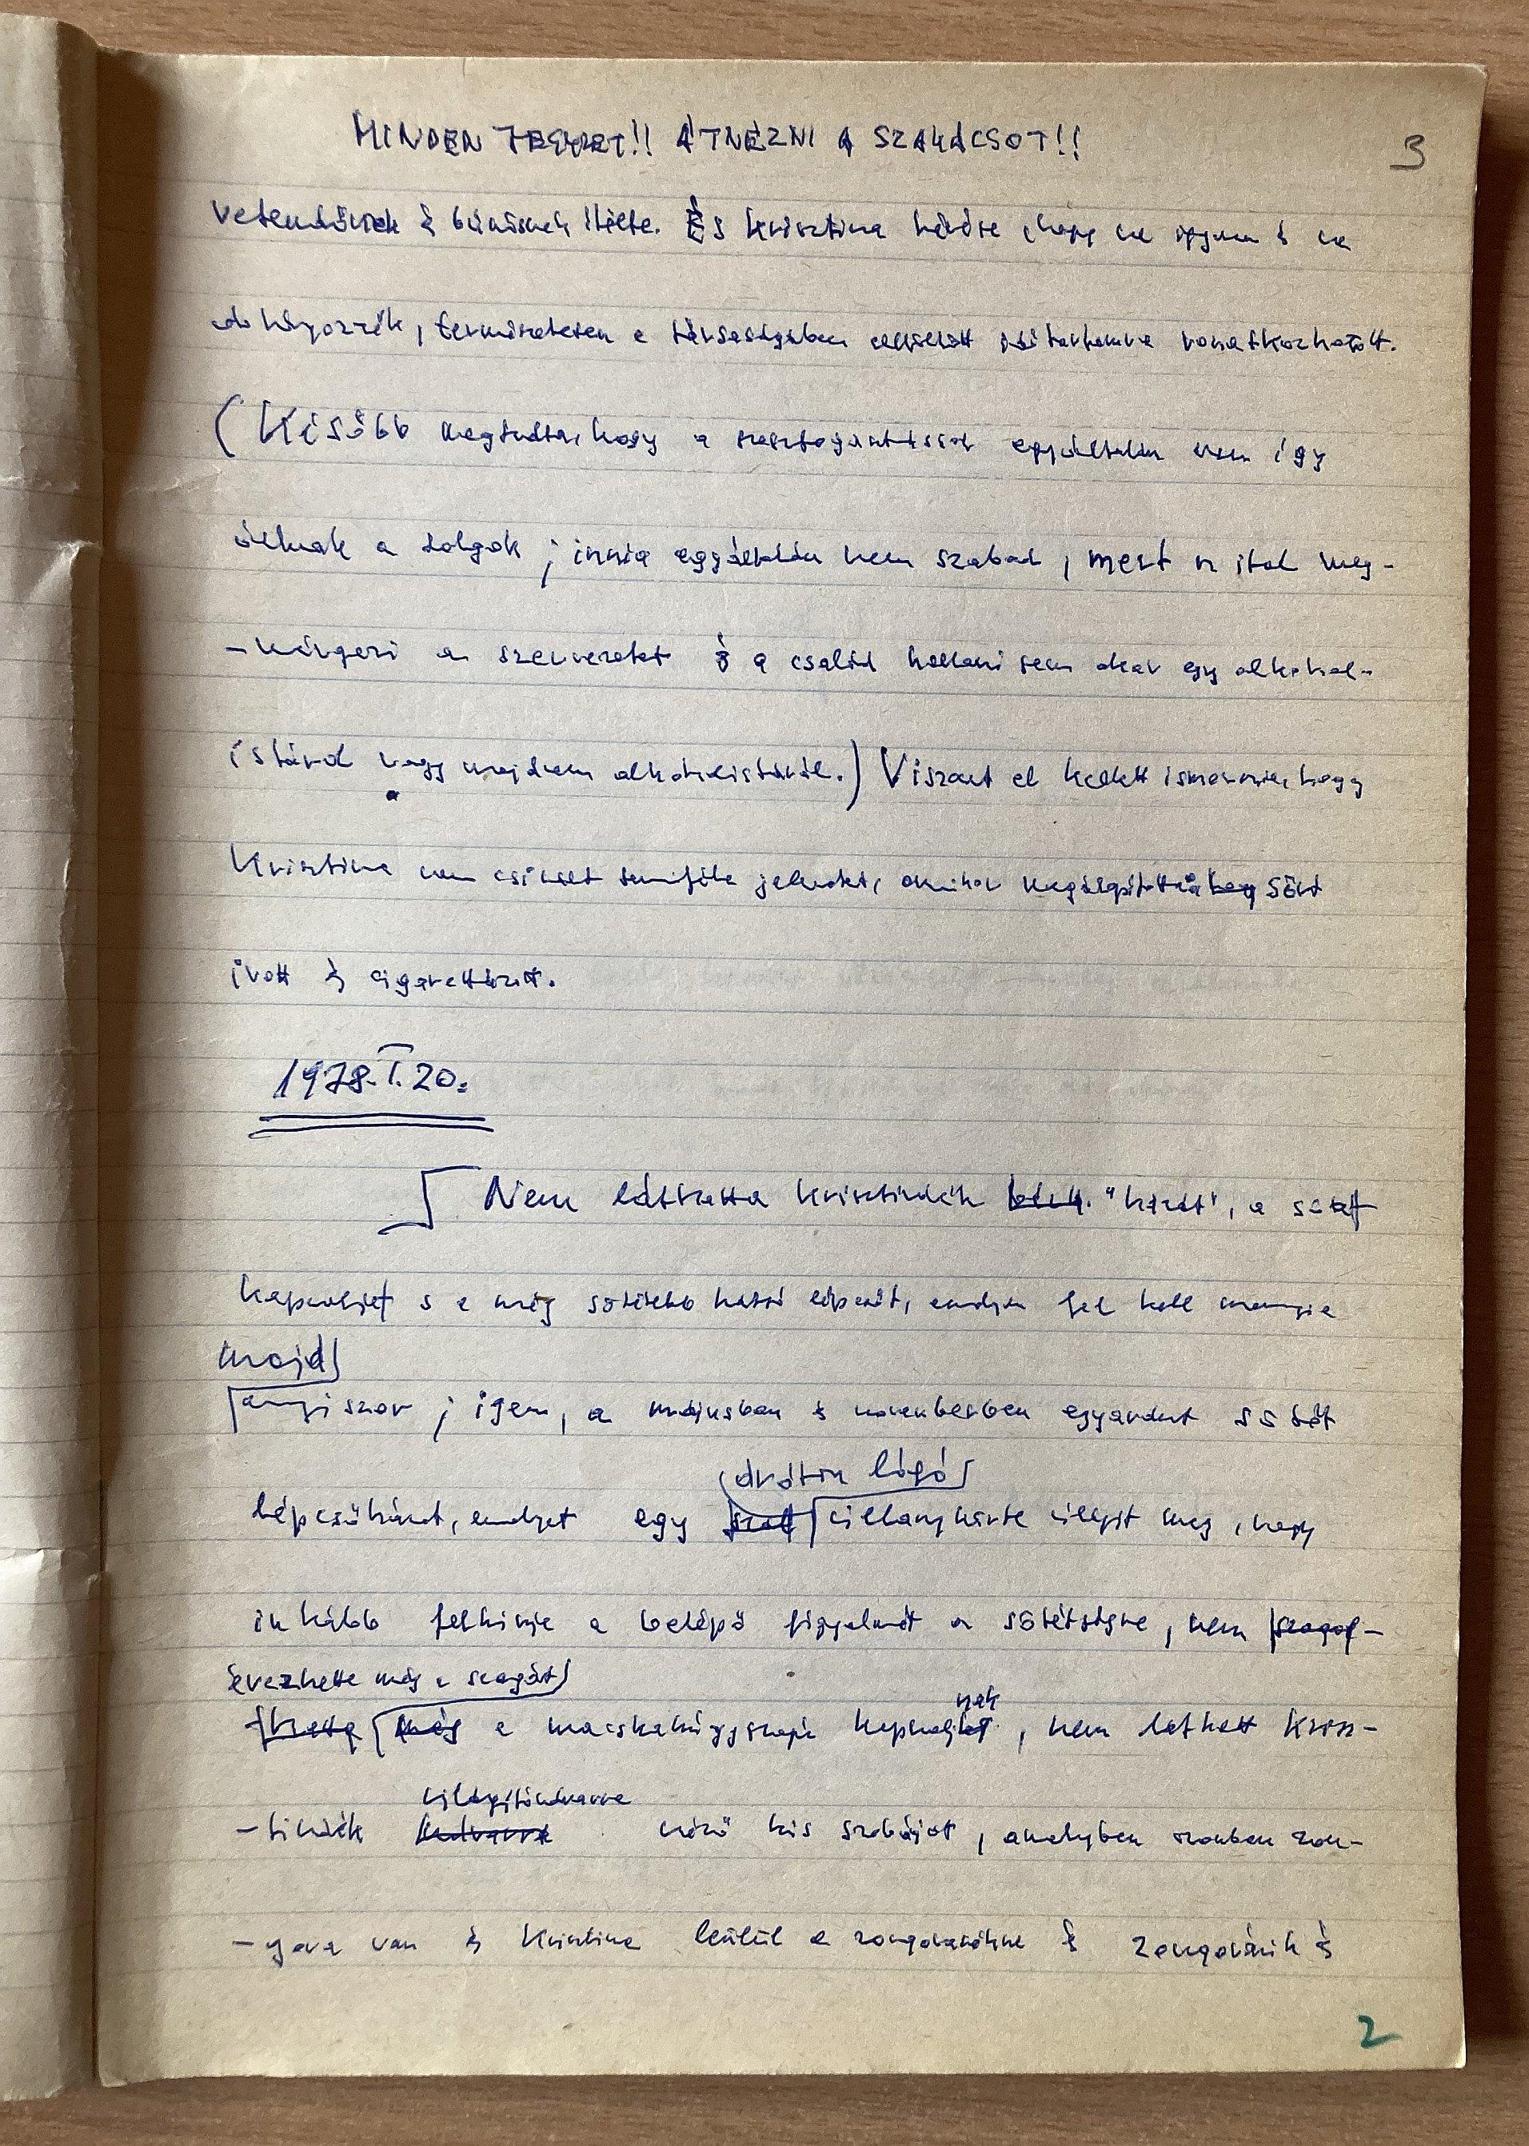 MINDEN JEGYZET!! ÁTNÉZNI A SZAKÁCSOT!! 3
vetendőnek és bűnösnek ítélte. És Krisztina kérése, hogy ne igyon és ne
dohányozzék, természetesen a társaságában eltöltött időtartamra vonatkozhatott.
(Később megtudta, hogy a egyáltalán nem így
állnak a dolgok; innia egyáltalán nem szabad, mert az ital meg-
-mérgezi a szervezetet és a család hallani sem akar egy alkohol-
istáról vagy majdnem alkoholistáról.) Viszont el kellett ismernie, hogy
Krisztina nem csinált semmiféle jelenetet, amikor sört
ivott és cigarettázott.
1978. I. 20.
Nem láthatta Krisztináék "házát", a sötét
kapualjat s a még sötétebb hátsó lépcsőt, amelyen fel kell mennie
majd
annyiszor; igen, a májusban és novemberben egyaránt sötét
drótón lógó
lépcsőházat, amelyet egy villanykörte világít meg, hogy
inkább felhívja a belépő figyelmét a sötétségre, nem szagol-
érezhette még a szagát
hatta még a macskahúgyszagú kapualjnak, nem láthatta Krisz-
világítóudvarra
-tináék udvarra néző kis szobáját, amelyben azonban zon-
-gora van és Krisztina leülül a zongorához és zongorázik és
2